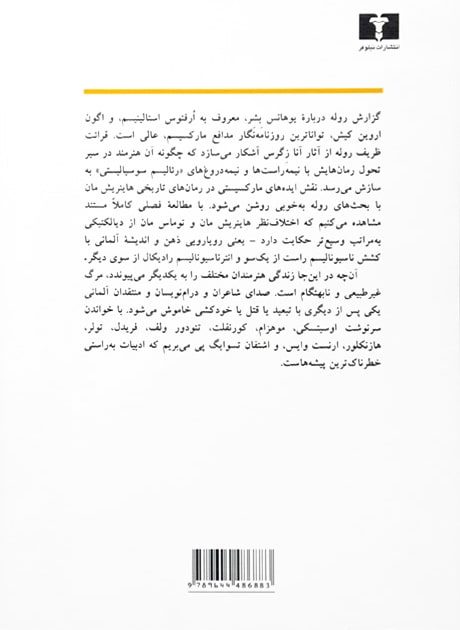 انتشارات نیلوفر
گزارش روله دربارهٔ یوهانس بشر، معروف به اُرفئوس استالینیسم، و اگون
اروین کیش، تواناترین روزنامه‌نگار مدافع مارکسیسم، عالی است. قرائت
ظریف روله از آثار آنا زِگرس آشکار می‌سازد که چگونه آن هنرمند در سیر
تحول رمان‌هایش با نیمه‌راست‌ها و نیمه‌دروغ‌های «رئالیسم سوسیالیستی» به
سازش می‌رسد. نقش ایده‌های مارکسیستی در رمان‌های تاریخی هاینریش مان
با بحث‌های روله به‌خوبی روشن می‌شود. با مطالعهٔ فصلی کاملاً مستند
مشاهده می‌کنیم که اختلاف‌نظر هاینریش مان و توماس مان از دیالکتیکی
به‌مراتب وسیع‌تر حکایت دارد – یعنی رویارویی ذهن و اندیشهٔ آلمانی با
کشش ناسیونالیسم راست از یک‌سو و انترناسیونالیسم رادیکال از سوی دیگر.
آن‌چه در این‌جا زندگی هنرمندان مختلف را به یکدیگر می‌پیوندد، مرگ
غیرطبیعی و نابهنگام است. صدای شاعران و درام‌نویسان و منتقدان آلمانی
یکی پس از دیگری با تبعید یا قتل یا خودکشی خاموش می‌شود. با خواندن
سرنوشت اوسیتسکی، موهزام، کورنفلت، تئودور ولف، فریدل، تولر،
هازنکلور، ارنست وایس، و اشتفان تسوایگ پی می‌بریم که ادبیات به‌راستی
خطرناک‌ترین پیشه‌هاست.
9 789644 486883